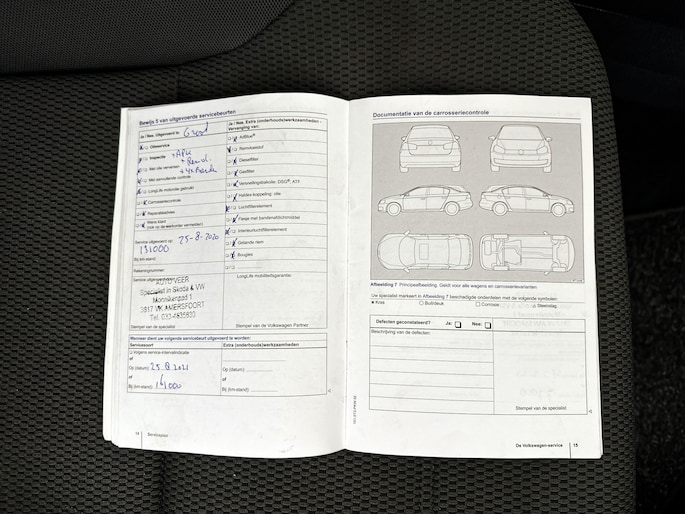 Bewijs 5 van uitgevoerde servicebeurten
Ja / Nee. Uitgevoerd is: Groot
Olieservice
Inspectie + APK
Met olie verversen + Remol.
Met aanvullende controle
LongLife motorolie gebruikt
Carrosseriecontrole
Reparatieadvies
Wens klant
Service uitgevoerd op: 25-8-2020
131000
Bij km-stand:
Rekeningnummer:
Service uitgevoerd door:
AUTO VEER
Specialist in Skoda & VW
Monnikenpad 1
3817 VK AMERSFOORT
Tel. 033-4635830
Stempel van de specialist
Ja / Nee. Extra (onderhouds)werkzaamheden -
Vervanging van:
AdBlue®
Remvloeistof
Dieselfilter
Gasfilter
Versnellingsbakolie: DSG®, ATF
Haldex-koppeling: olie
Luchtfilterelement
Flesje met bandenafdichtmiddel
Interieurluchtfilterelement
Getande riem
Bougies
LongLife mobiliteitsgarantie:
Stempel van de Volkswagen Partner
Wanneer dient uw volgende servicebeurt uitgevoerd te worden:
Servicesoort
Volgens service-intervalindicatie
of
Op (datum): 25 8 2021
of
Bij (km-stand): 161000
Extra (onderhouds)werkzaamheden
Op (datum):
of
Bij (km-stand):
14 Serviceplan
Documentatie van de carrosseriecontrole
Afbeelding 7 Principeafbeelding. Geldt voor alle wagens en carrosserievarianten.
Uw specialist markeert in Afbeelding 7 beschadigde onderdelen met de volgende symbolen:
Kras Buil/deuk Corrosie Steenslag
Defecten geconstateerd? Ja: Nee:
Beschrijving van de defecten:
Stempel van de specialist
De Volkswagen-service 15